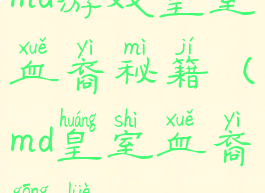 md游戏皇室
xuě yì mì jí
血裔秘籍(
huáng shì xuě yì
md皇室血裔
gōng lüè